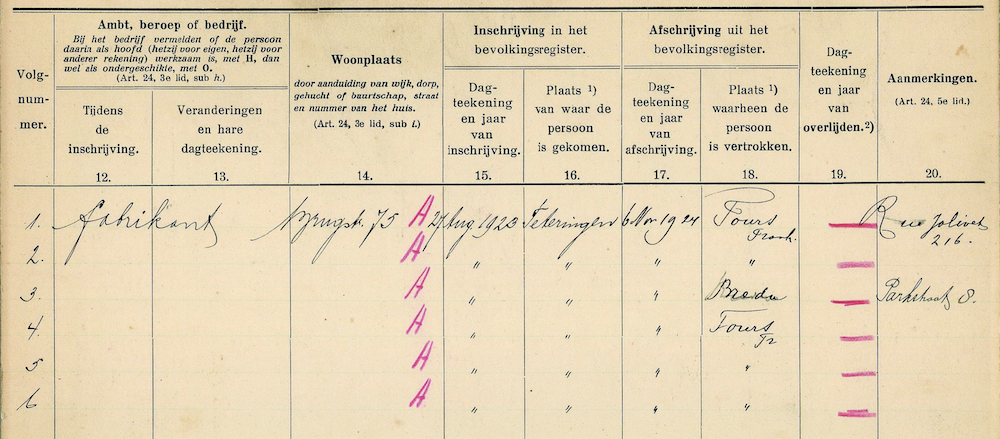 Volg-
num-
mer.
Ambt, beroep of bedrijf.
Bij het bedrijf vermelden of de persoon
daarin als hoofd (hetzij voor eigen, hetzij voor
anderer rekening) werkzaam is, met H, dan
wel als ondergeschikte, met O.
(Art. 24, 3e lid, sub h.)
Tijdens
de
inschrijving.
Veranderingen
en hare
dagteekening.
Woonplaats
door aanduiding van wijk, dorp,
gehucht of buurtschap, straat
en nummer van het huis.
(Art. 24, 3e lid, sub i.)
Inschrijving in het
bevolkingsregister.
Dag-
teekening
en jaar
van
inschrijving.
Plaats 1)
van waar de
persoon
is gekomen.
Afschrijving uit het
bevolkingsregister.
Dag-
teekening
en jaar
van
afschrijving.
Plaats 1)
waarheen de
persoon
is vertrokken.
Dag-
teekening
en jaar
van
overlijden.2)
Aanmerkingen.
(Art. 24, 5e lid.)
12. 13. 14. 15. 16. 17. 18. 19. 20.
1. fabrikant Brugstr. 75 A 27 Aug. 1923 Teteringen 6 Nov 1924 Tours — Rue Jolivet
Frankr. 216.
2. A " " " " —
3. A " " " Breda — Parkstraat 8.
4. A " " " Tours —
Fr
5 A " " " " —
6 A " " " " —